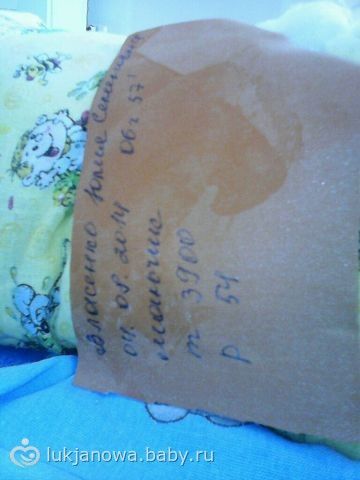 Власенко Юлия Семеновна
04.08.2014 06ч 57'
Мальчик
m 3900
р 54
lukjanowa.baby.ru